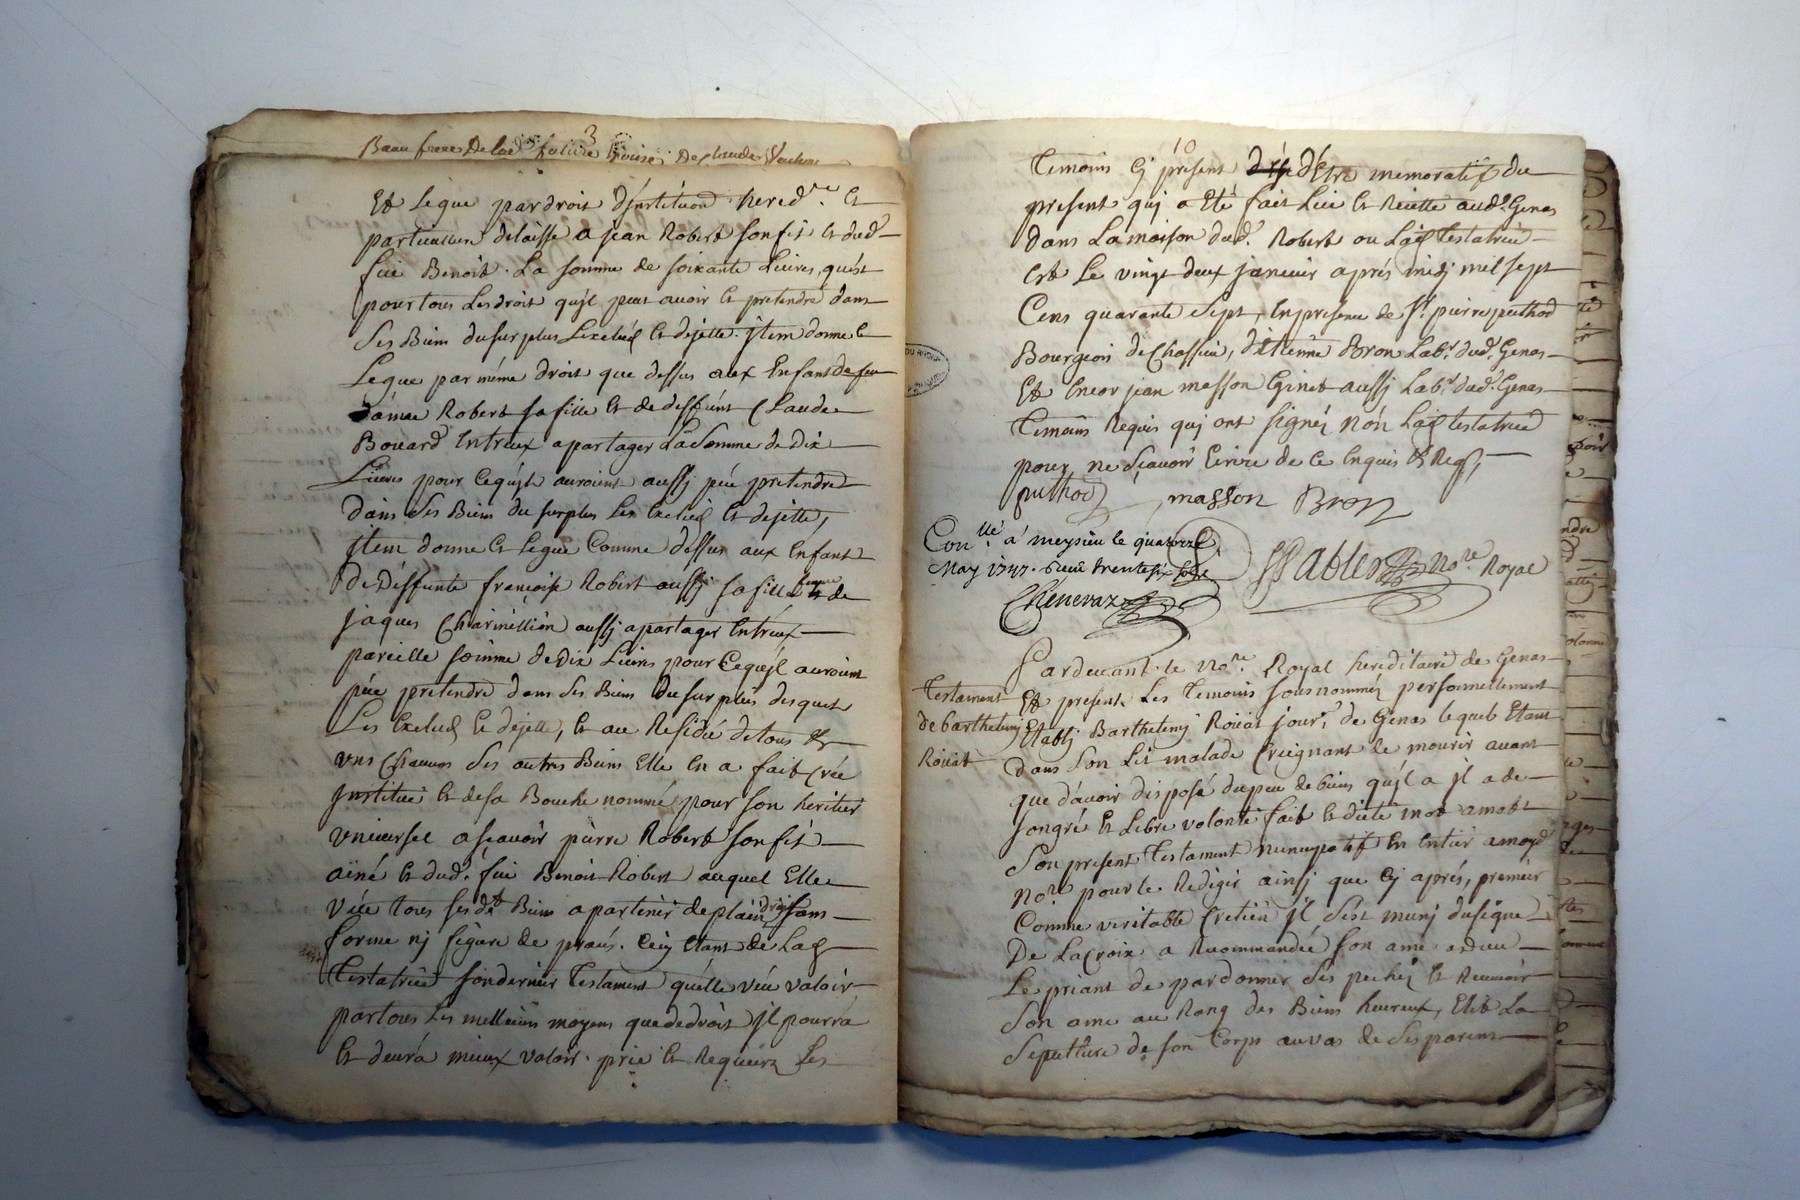 3
Beau frere De lad. future Epouse, De Claude
Et legue par droit d'jnstitution hered.re et
particuliere délaisse a jean Robert son fis et dud.
feu Benoit. La somme de soixante Livres, qu'est
pour tous Les droit qu'jl peut avoir et pretendre dans
Ses Biens du surplus L'exclud et dejette. jtem donne et
Legue par même droit que dessus aux Enfans de feu
Robert sa fille et de deffunt Claude
Bouard Entreux a partager La Somme de Dix
Livres pour Cequ'jls auroient aussj péu pretendre
dans Ses Biens du surplus Les Exclud et dejette,
jtem donne et Legue Comme dessus aux Enfans
de Déffunte françoise Robert aussj sa fille femme de
jaques aussj a partager Entreux
pareille somme de Dix Livres pour Cequ'jl auroient
péu pretendre dans Ses Biens du surplus desquels
Les Exclud et dejette, et au Résidu de tous et
uns Chacuns Ses autres Biens Elle En a fait Crée
jnstitué et de sa Bouche nommé pour son heritier
universel a sçavoir pierre Robert son fis
ainé et dud. feu Benoit Robert auquel Elle
véut tous sesdt. Biens apartenir de plain droit sans
forme nj figure de procés. Cecy Etant de Lad.
Testatrice son dernier Testament qu'elle véut valoir
par tous Les meilleurs moyens que de droit jl pourra
et devra mieux valoir. prie et Requiert Les
10
Temoins Cj présent d'Etre memoratif du
present quj a Eté fait Lue et Recitte aud. Genas
dans La maison dud. Robert ou Lad. Testatrice
Est Le vingt deux janvier aprés midj mil sept
Cens quarante Sept, En presence de Sr. pierre puthod
Bourgeois de Chassieu, d'Etienne Bron Labr. dud. Genas
Et Encor jean masson Ginet aussj Labr. dud. Genas
Temoins Requis quj ont signéz Nón Lad. testatrice
pour ne Sçavoir Ecrire de ce Enquis et Reqs,
puthod masson Bron
Con.llé á meysieu le quatorze
May 1747. Reçu trente six sols
Cheneraz
No.re Royal
Pardevant le No.re Royal hereditaire de Genas
Testament
de barthelemj
Roüat
Et present Les Temoins sousnomméz personnellement
Etablj Barthelemj Roüat jour.r de Genas lequel Etant
dans Son Lit malade Creignant de mourir avant
que d'avoir disposé du peu de biens qu'jl a jl a de
son gré et Libre volonté fait et dicté mot a mot
Son present Testament nuncupatif En Entier a moyd.
No.re pour le Redigér ainsj que Cj aprés, premiér
Comme veritable Cretien jl s'est munj du signe
De La Croix a Recommandée son ame a dieu
Le priant de pardonner Ses pechéz et Recevoir
Son ame au Rang des Biens heureux, Elit La
Sepulture de son Corps au vas de Ses parens